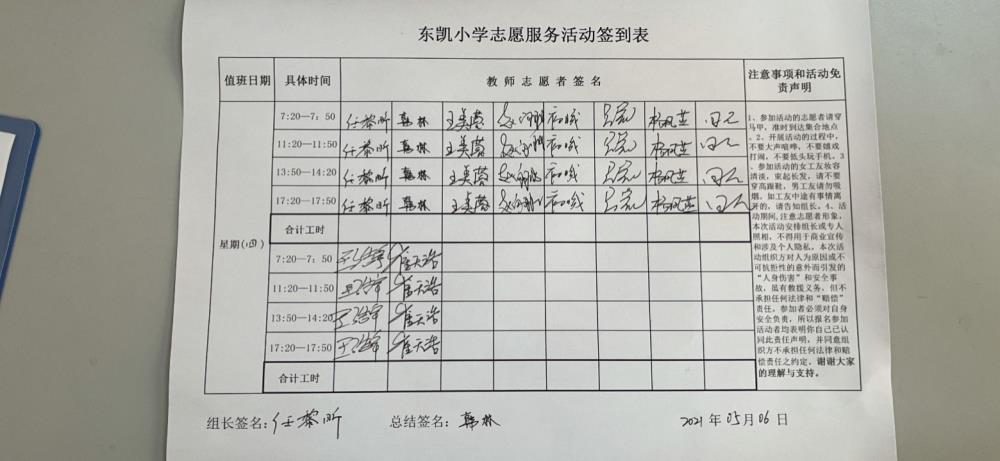 东凯小学志愿服务活动签到表
值班日期 具体时间 教师志愿者签名 注意事项和活动免责声明
7:20—7:50 任黎昕 韩林 王美蓉
11:20—11:50 任黎昕 韩林 王美蓉
13:50—14:20 任黎昕 韩林 王美蓉
17:20—17:50 任黎昕 韩林 王美蓉
合计工时
星期(四)
7:20—7:50 崔天浩
11:20—11:50 崔天浩
13:50—14:20 崔天浩
17:20—17:50 崔天浩
合计工时
1、参加活动的志愿者请穿
马甲，准时到达集合地点
。2、开展活动的过程中，
不要大声喧哗，不要嬉戏
打闹，不要低头玩手机。3
、参加活动的女工友妆容
清淡，束起长发，请不要
穿高跟鞋，男工友请勿吸
烟。如工友中途有事情离
开的，请告知组长。4、活
动期间,注意志愿者形象，
本次活动安排组长或专人
照相，不得用于商业宣传
和涉及个人隐私。本次活
动组织方对人为原因或不
可抗拒性的意外而引发的
“人身伤害”和安全事
故，虽有救援义务，但不
承担任何法律和“赔偿”
责任，参加者必须对自身
安全负责，所以报名参加
活动者均表明你自己已认
同此责任声明，并同意组
织方不承担任何法律和赔
偿责任之约定。谢谢大家
的理解与支持。
组长签名：任黎昕 总结签名：韩林 2021年05月06日